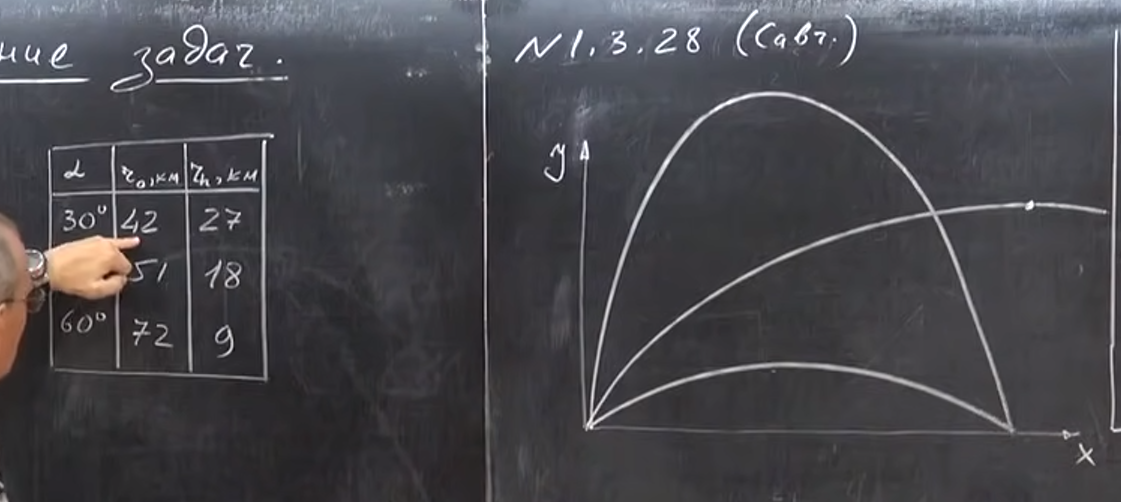 ние задач.
α r₀, км rₕ, км
30° 42 27
51 18
60° 72 9
N1.3.28 (Савч.)
y
x